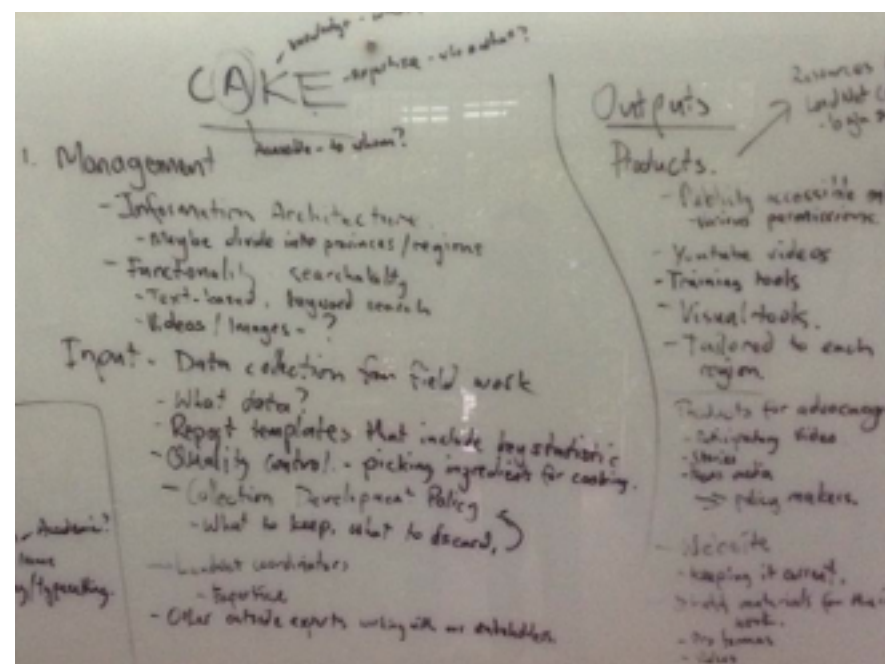 knowledge -
CAKE - expertise - who and how?
Accessible - to whom?
1. Management
- Information Architecture
- Maybe divide into provinces/regions
- Functionality searchability
- Text-based, keyword search
- Videos / Images - ?
Input - Data collection from field work
- What data?
- Report templates that include key statistic
- Quality control - picking ingredients for cooking.
- Collection Development Policy
- What to keep, what to discard.
coordinators
- Expertise
- Other outside experts working with our stakeholders.
- Academic?
/typesetting.
Outputs
Resources
Products.
- Publicly accessible
- various permissions
- Youtube videos
- Training tools
- Visual tools.
- Tailored to each
region
Products for advocacy
- Participatory video
- Stories
- News media
→ policy makers.
- Website
- keeping it current.
materials for the
work.
- videos